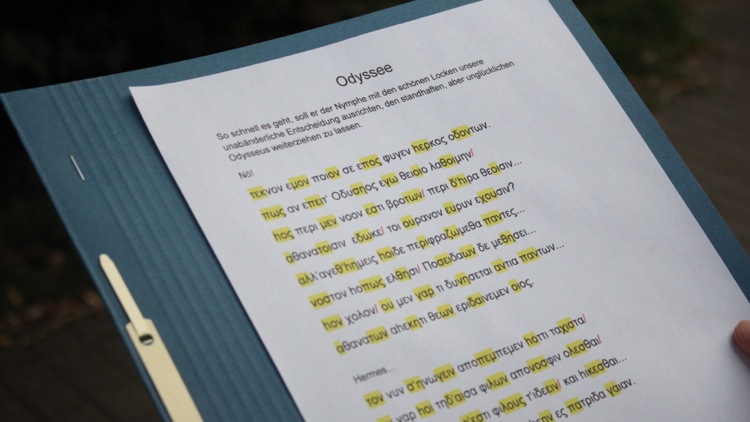 Odyssee
So schnell es geht, soll er der Nymphe mit den schönen Locken unsere
unabänderliche Entscheidung ausrichten, den standhaften, aber unglücklichen
Odysseus weiterziehen zu lassen.
Nö!
τεκνον εμον ποιον σε επος φυγεν hερκος οδοντων.
πως αν επειτ' Οδυσηος εγω θειοιο λαθοιμην/
hος περι μεν νοον εστι βροτων/ περι δ'hιρα θεοισιν...
αθανατοισιν εδωκε/ τοι ουρανον ευρυν εχουσιν?
αλλ'αγεθ'hημεις hοιδε περιφραζωμεθα παντες...
νοστον hοπως ελθησι/ Ποσειδαων δε μεθησει...
hον χολον/ ου μεν γαρ τι δυνησεται αντια παντων...
αθανατων αhεκητι θεων εριδαινεμεν οιος.
Hermes...
τον νυν σ'ηνωγειν αποπεμπεμεν hοττι ταχιστα/
γαρ hοι τηδ'αισα φιλων απονοσφιν ολεσθαι/
'εστι φιλους τ'ιδεειν/ και hικεσθαι...
ες πατριδα γαιαν.